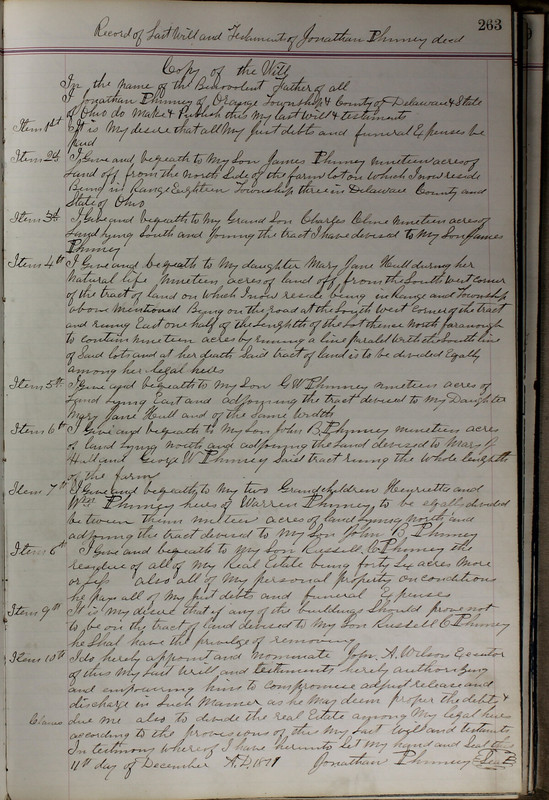 263
Record of Last Will and Testament of Jonathan Phinney decd
Copy of the Will
In the name of the Benevolent Father of all
I Jonathan Phinney of Orange Township & County of Delaware & State
of Ohio do Make & Publish this My last will & testament
Item 1st It is My desire that all My just debts and funeral Expenses be
paid
Item 2d I Give and beqeath to My Son James Phinney nineteen acres of
Land off from the North Side of the farm lot on which I now reside
Being in Range Eighteen Township three in Delaware County and
State of Ohio
Item 3d I Give and beqeath to My Grand Son Charles Cline nineteen acres of
Land lying South and Joining the tract I have devised to My Son James
Phinney
Item 4th I Give and beqeath to My daughter Mary Jane Hull during her
Natural life nineteen acres of land off from the South West Corner
of the tract of land on which I now reside being in Range and Township
above Mentioned Being on the road at the South West Corner of the tract
and runing East one half of the lenghth of the Lot thense North far anough
to contain nineteen acres by runing a line paralel with the South line
of Said Lot and at her death Said tract of land is to be divided Eqally
among her legal heirs
Item 5th I Give and beqeath to My Son G W Phinney nineteen acres of
Land Lying East and adjoining the tract devised to My Daughter
Mary Jane Hull and of the Same Width
Item 6th I Give and beqeath to My Son John B Phinney nineteen acres
of land Lying North and adjoining the Land devised to Mary J
Hull and George W Phinney Said tract runing the whole lenghth
of the farm
Item 7th I Give and beqeath to My two Grandchildren Henrietta and
Wm Phinney heirs of Warren Phinney to be eqally divided
be tween them nineteen acres of land Lying North and
adjoing the tract devised to My Son John B Phinney
Item 8th I Give and beqeath to My Son Russell C Phinney the
residue of all of My Real Estate being forty 54 acres More
or Less also all of My personal property on conditions
he pays all of My just debts and funeral Expenses
Item 9th It is My desire that if any of the buildings Should prove not
to be on the tract of land devised to My Son Russell C Phinney
he Shal have the privilege of removing
Item 10th I do hereby appoint and nominate A. Wilson Executor
of this My Last Will and testiments hereby authorizing
and empowring him to Compromise adjust release and
discharge in Such Manner as he May deem proper the debts &
Claims due me also to divide the real Estate among My legal heirs
according to the provisions of this My Last Will and testiments
In testimony whereof I have hereunto Set My hand and Seal this
11th day of December A.D. 1871 Jonathan Phinney Seal